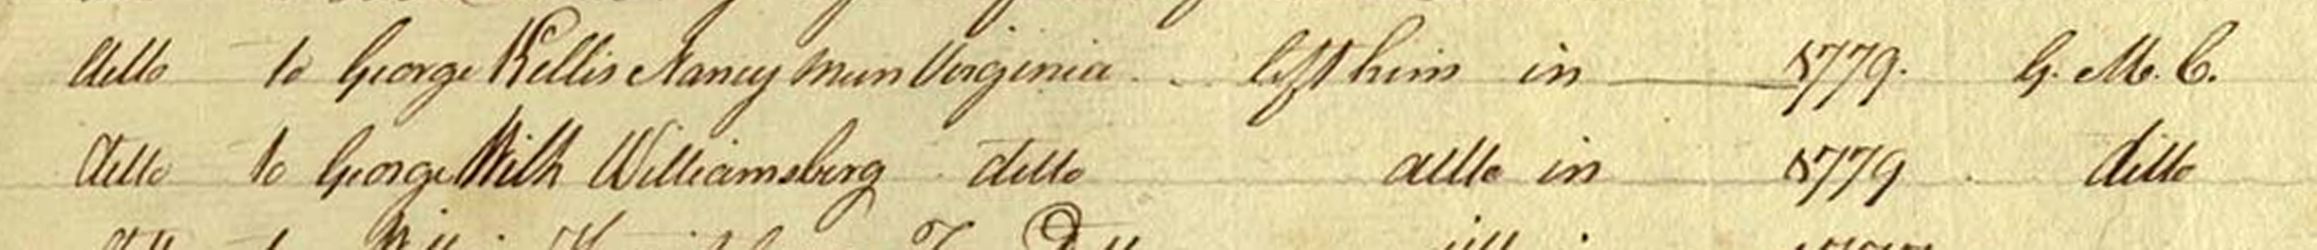 ditto to George Kellis Nancymun Virginia left him in 1779. G. M. C.
ditto to George Wilk Williamsburg ditto ditto in 1779 ditto